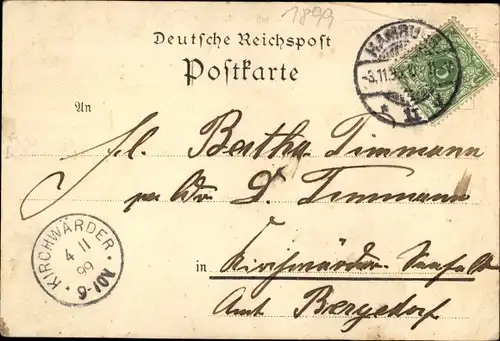 1899
Deutsche Reichspost
Postkarte
HAMBURG
3.11.9
11
5
An
Frl. Bertha Timmann
per Adr D. Timmann
in Kirchwärder
Amt Bergedorf
KIRCHWÄRDER
4 11
99
6-7V